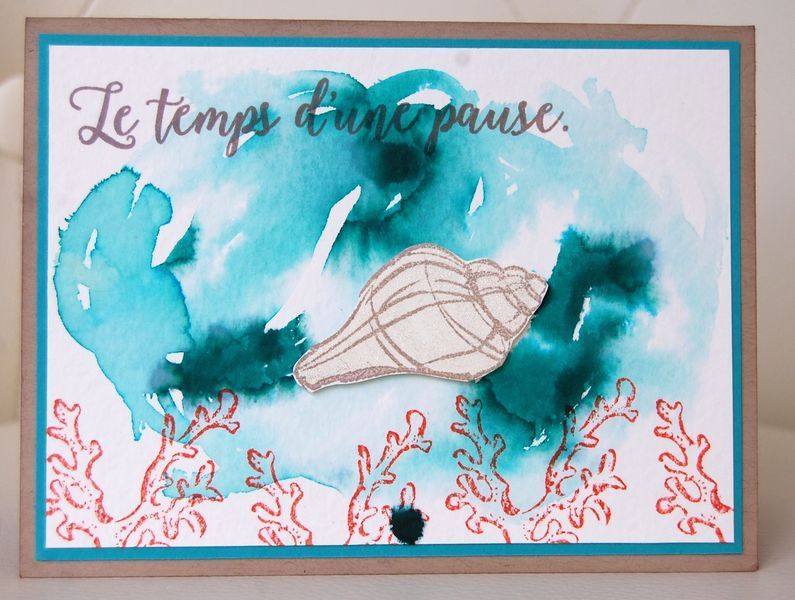 Le temps d'une pause.